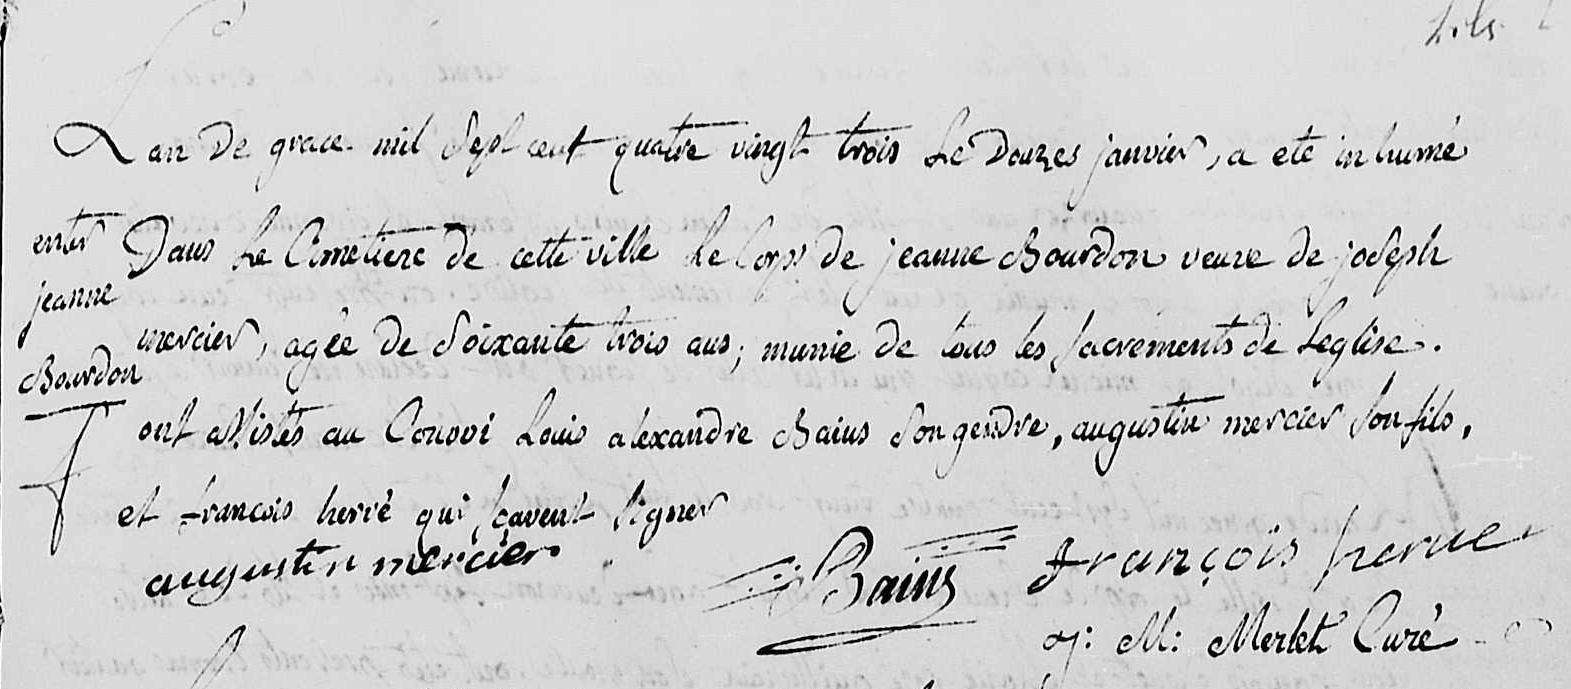 Lan de grace mil sept cent quatre vingt trois le douzes janvier, a eté inhumé
enter
jeanne
Bourdon
dans le Cimetiere de cette ville le Corps de jeanne Bourdon veuve de joseph
mercier, agée de soixante trois ans; munie de tous les sacrements de Leglise.
ont assistés au Convoi Louis alexandre Bains son gendre, augustin mercier son fils,
et francois hervé qui sçavent signer
augustin mercier
Bains
françois herue
M: Merlet Curé